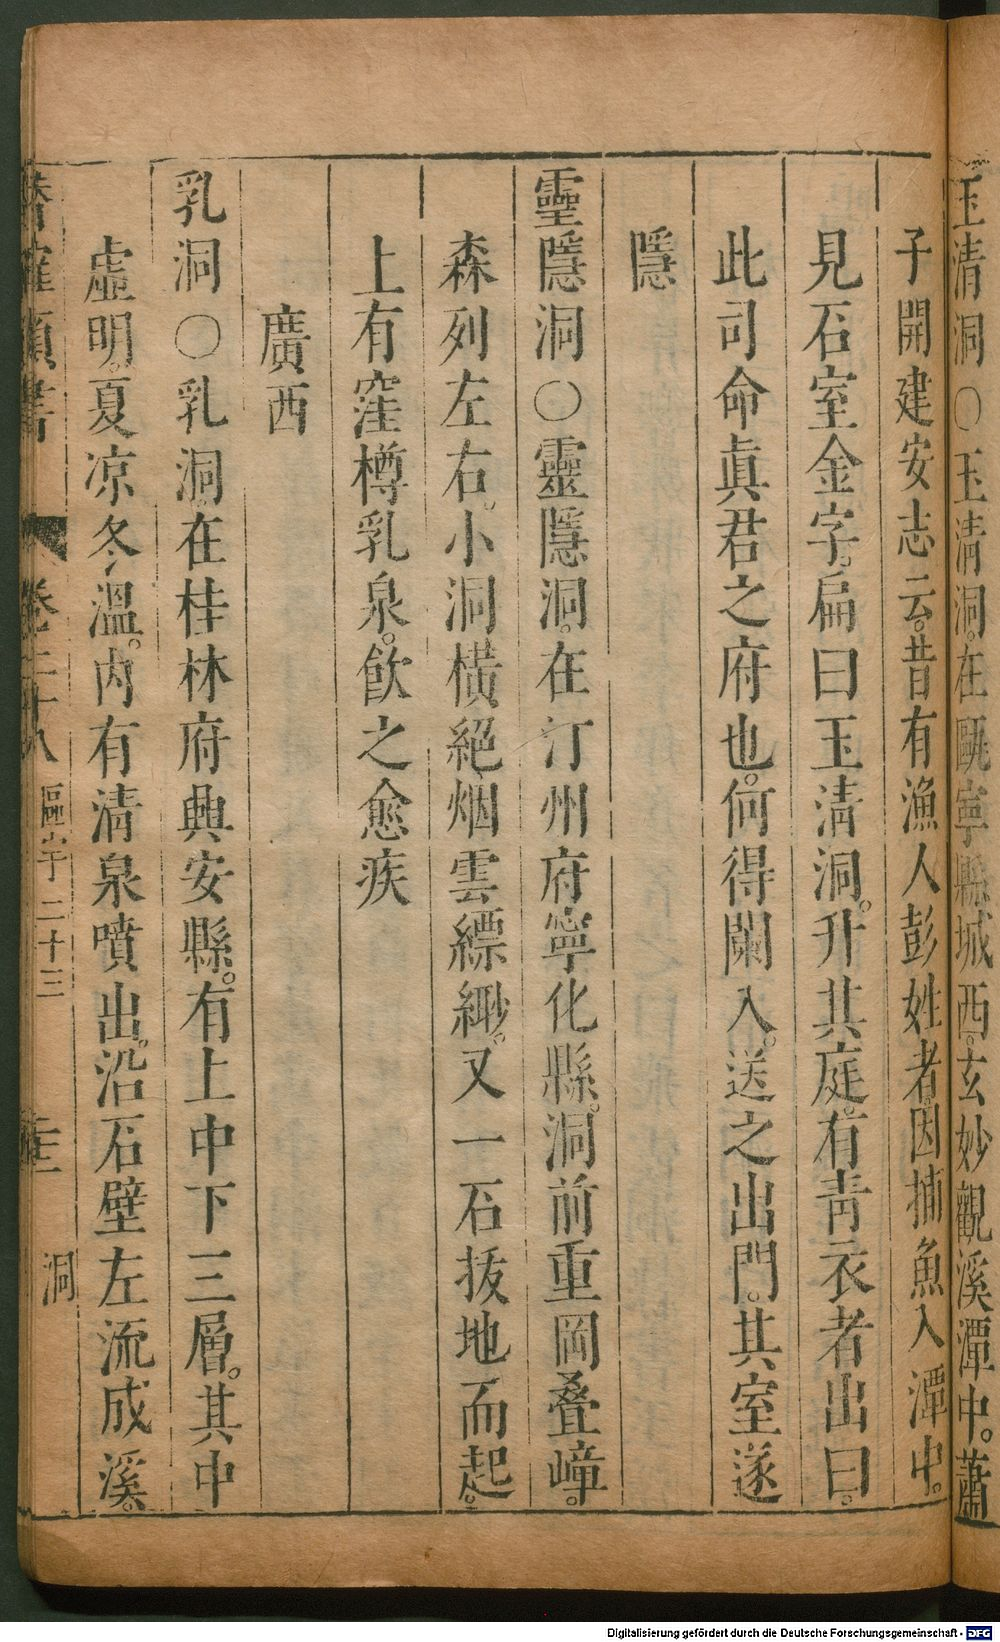 玉清洞○玉清洞。在甌寧縣城西。玄妙觀溪潭中。蕭
子開建安志云。昔有漁人彭姓者。因捕魚入潭中。
見石室金字。扁曰玉清洞。升其庭。有靑衣者出曰。
此司命眞君之府也。何得闌入。送之出門。其室遂
隱
靈隱洞○靈隱洞。在汀州府寧化縣。洞前重岡叠嶂。
森列左右。小洞橫絕烟雲縹緲。又一石拔地而起。
上有窪樽乳泉。飮之愈疾
廣西
乳洞○乳洞在桂林府興安縣。有上中下三層。其中
虛明。夏凉冬溫。內有淸泉噴出。沿石壁左流成溪。
類書 卷二十八 區宇二十三 洞
Digitalisierung gefördert durch die Deutsche Forschungsgemeinschaft - DFG